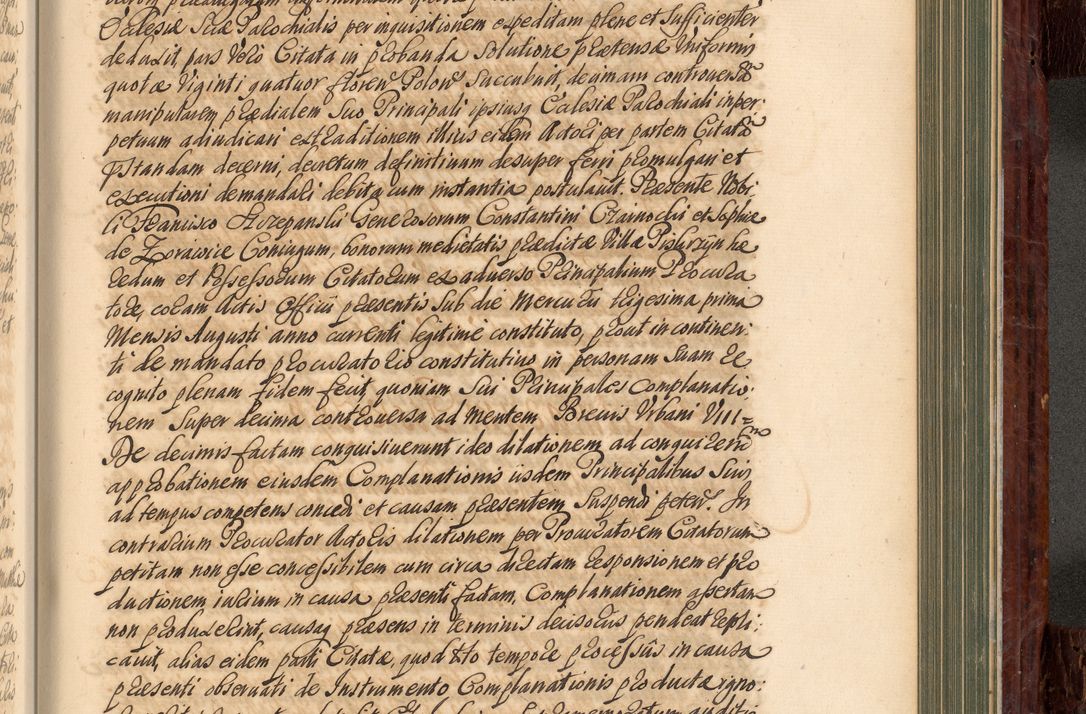 Ecclesiæ Suæ Parochialis per inquisitionem expeditam plene et Sufficienter
deduxit, pars Vero Citata in probanda Solutione prætensæ Uniformis
quotæ Viginti quatuor floren Polon Succubuit, decimam controversam
manipularem prædialem Suo Principali ipsiusq Ecclesiæ Parochiali in per:
petuum adiudicari extraditionem illius eidem Actori per partem Citatam
præstandam decerni, decretum definitivum desuper ferri promulgari et
executioni demandari debita cum instantia postulavit. Præsente Nobi:
li Francisco Szczepanski Generosorum Constantini Czarnocki et Sophiæ
de Zorawice Coniugum, bonorum medietatis prædictæ Villæ
redum et Possessorum Citatorum ex adverso Principalium Procura
tore, coram Actis Officii præsentis Sub die Mercurii trigesima prima
Mensis Augusti anno currenti legitime constituto, prout in continen:
ti de mandato procuratorio constitutivo in personam Suam re
cognito plenam fidem fecit, quoniam Sui Principales complanatio:
nem Super decima controversa ad mentem Brevis Urbani VIII
De decimis factam conquisiverunt ideo dilationem ad conquirendam
approbationem eiusdem Complanationis iisdem Principalibus Suis
ad tempus competens concedi et causam præsentem Suspendi peteret. In
contrarium Procurator Actoris dilationem per Procuratorem Citatorum
petitam non esse concessibilem cum circa directam responsionem et pro
ductionem iurium in causa præsenti factam, Complanationem assertam
non produxerint, causaq præsens in terminis decisoriis pendeat repli:
cavit, alias eidem parti Citatæ, quod tempore processûs in causa
præsenti observati de Instrumento Complanationis producta igno: